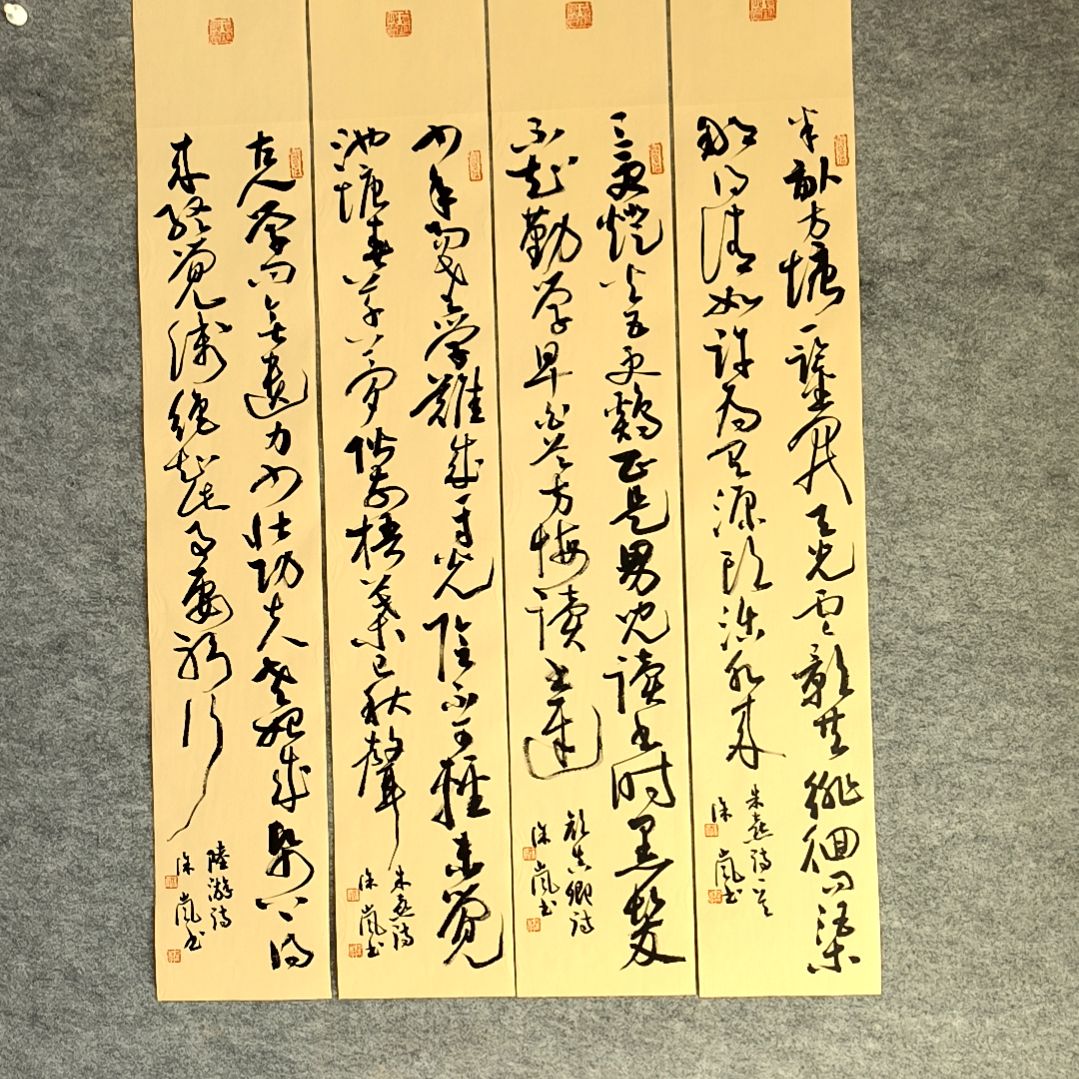 半畝方塘一鑑开天光云影共徘徊问渠
那得清如许为有源头活水来
朱熹诗一首
徐岚书
三更燈火五更鷄正是男儿读书时黑髮
不知勤学早白首方悔读书迟
颜真卿诗
徐岚书
少年易老学難成一寸光陰不可輕未觉
池塘春草梦阶前梧葉已秋聲
朱熹诗
徐岚书
古人学问无遗力少壮功夫老始成纸上得
来终觉浅绝知此事要躬行
陸游诗
徐岚书